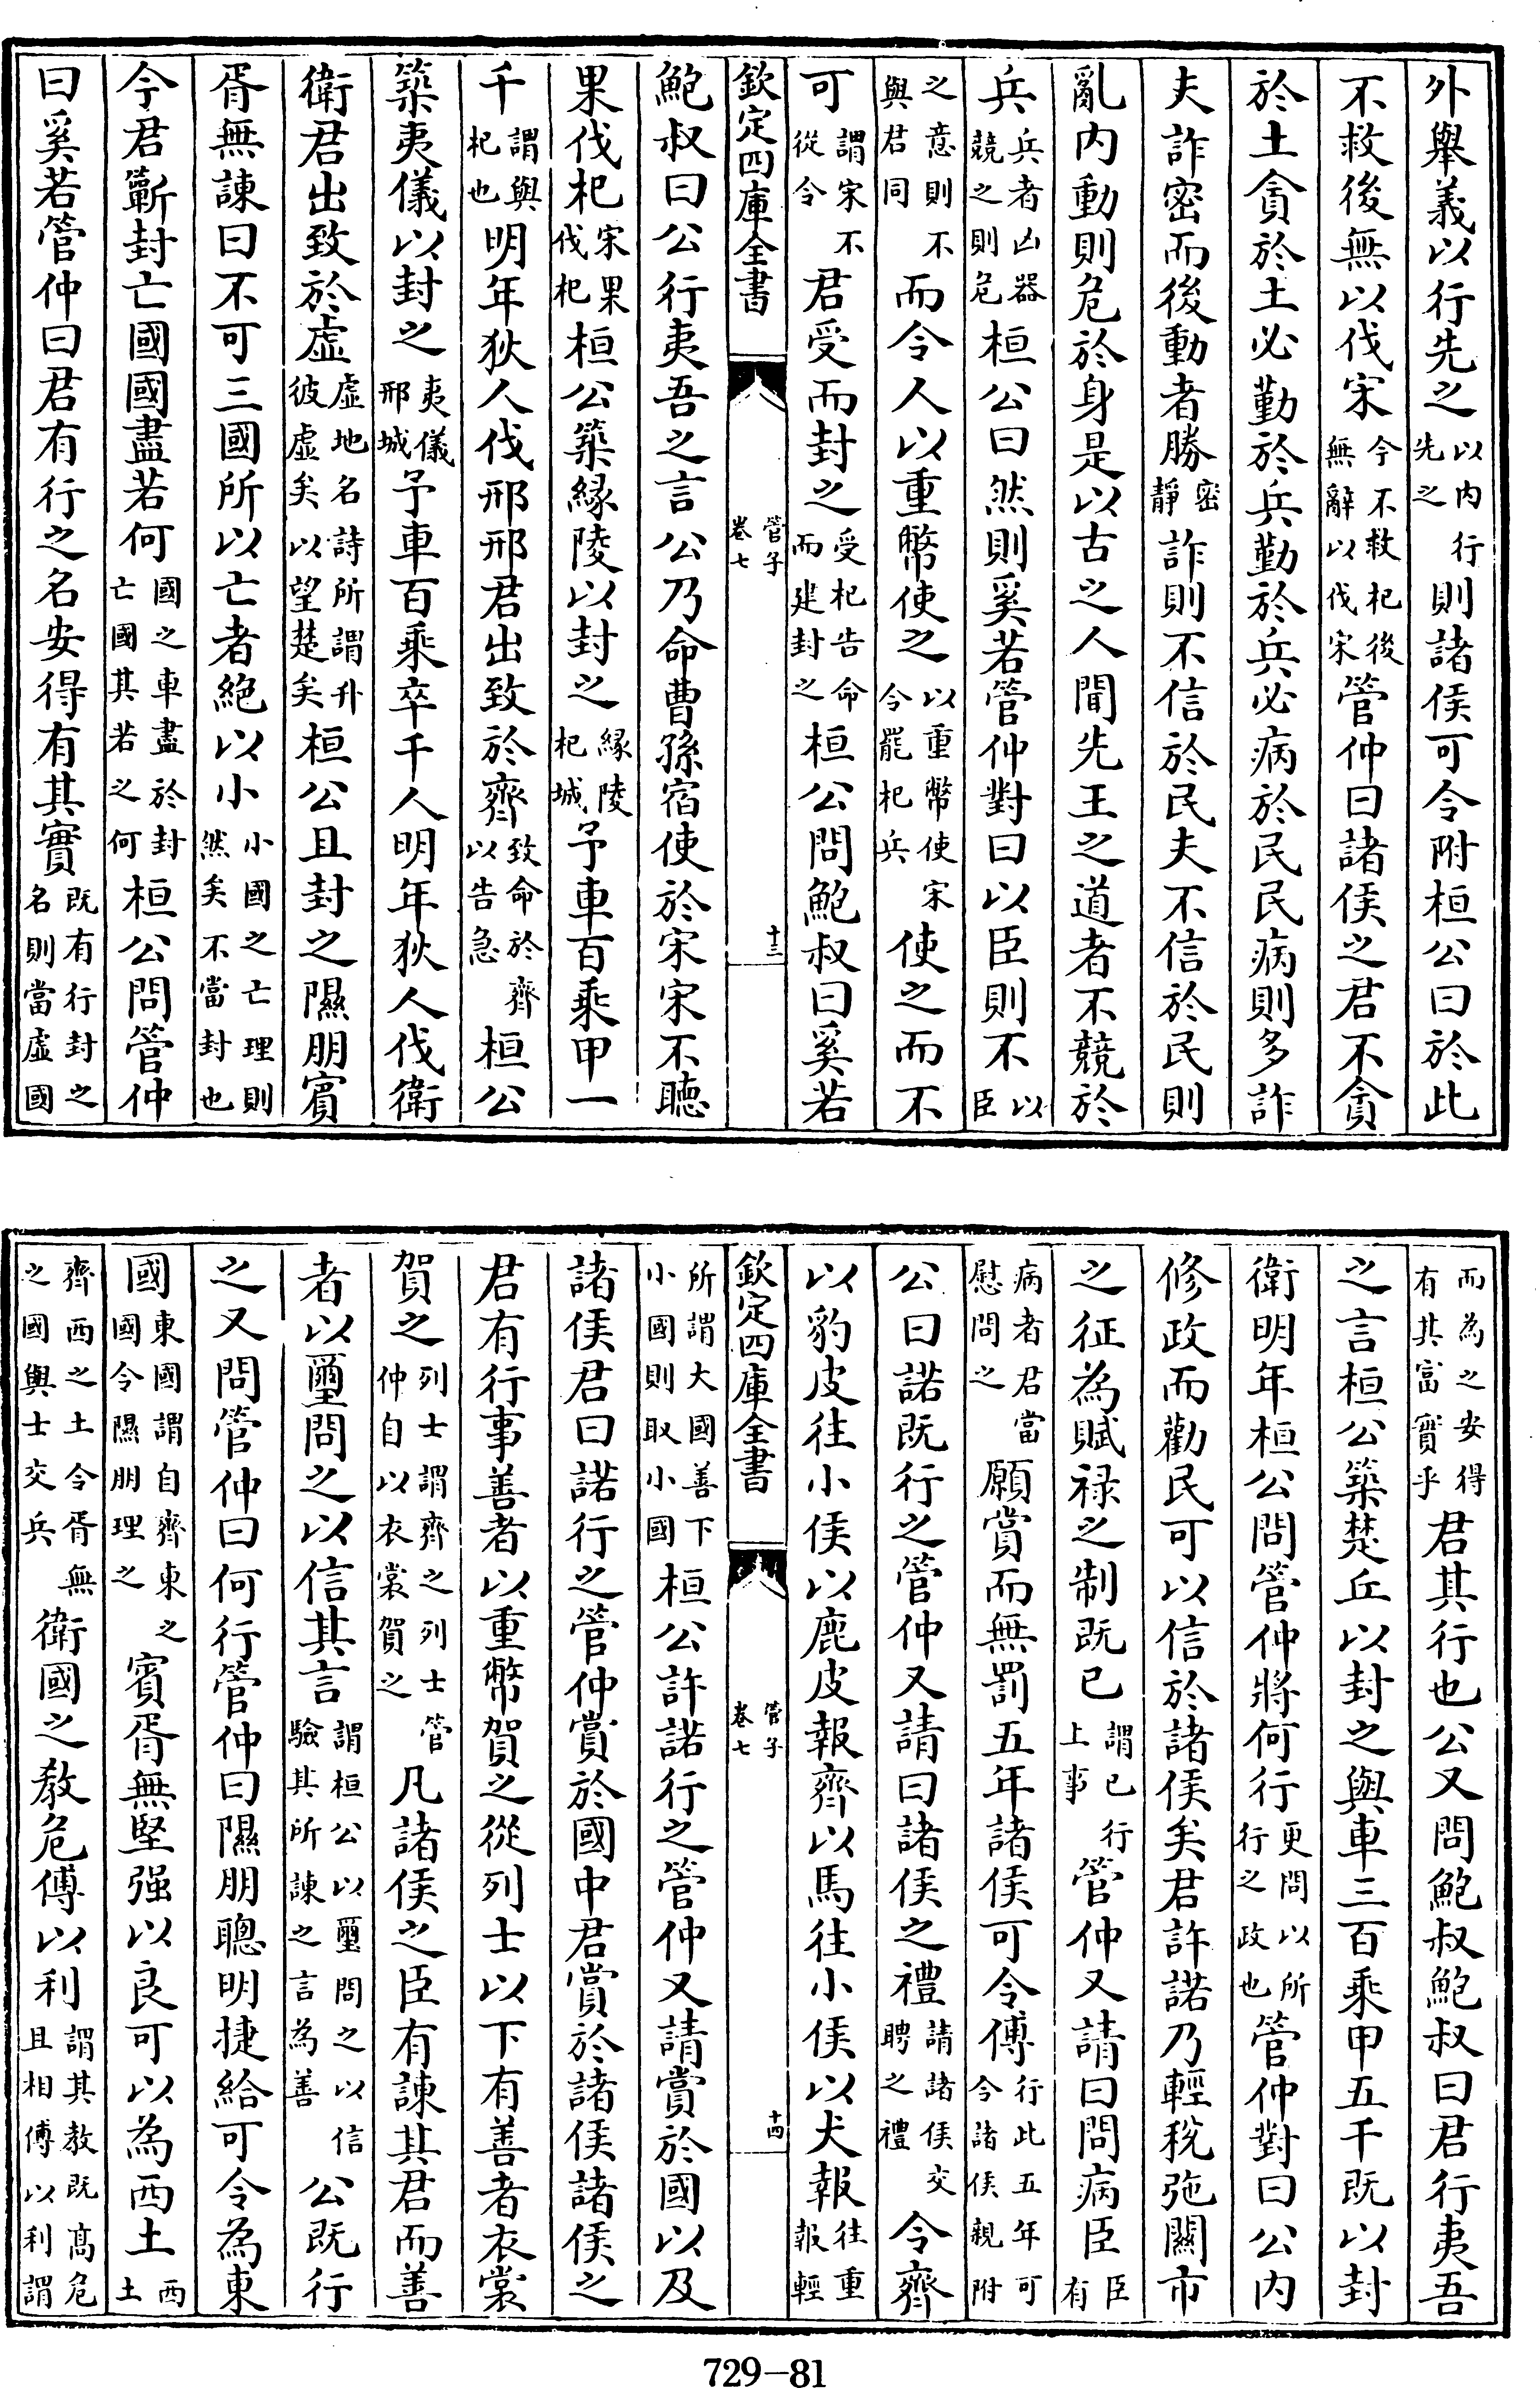 外舉義以行先之以内行先之則諸侯可令附桓公曰於此
不救後無以伐宋今不救杞後無辭以伐宋管仲曰諸侯之君不貪
於土貪於土必勤於兵勤於兵必病於民民病則多詐
夫詐密而後動者勝密靜詐則不信於民夫不信於民則
亂内動則危於身是以古之人聞先王之道者不競於
兵兵者凶器競之則危桓公曰然則奚若管仲對曰以臣則不以臣
之意則不與君同而令人以重幣使之以重幣使宋令罷杞兵使之而不
可謂宋不從令君受而封之受杞告命而建封之桓公問鮑叔曰奚若
欽定四庫全書 管子 卷七 十三
鮑叔曰公行夷吾之言公乃命曹孫宿使於宋宋不聽
果伐杞宋果伐杞桓公築緣陵以封之緣陵杞城予車百乘甲一
千謂與杞也明年狄人伐邢邢君出致於齊致命於齊以告急桓公
築夷儀以封之夷儀邢城予車百乘卒千人明年狄人伐衛
衛君出致於虛虛地名詩所謂升彼虛矣以望楚矣桓公且封之隰朋賓
胥無諫曰不可三國所以亡者絶以小小國之亡理則然矣不當封也
今君蘄封亡國國盡若何國之車盡於封亡國其若之何桓公問管仲
曰奚若管仲曰君有行之名安得有其實既有行封之名則當虛國
而為之安得有其富實乎君其行也公又問鮑叔鮑叔曰君行夷吾
之言桓公築楚丘以封之與車三百乘甲五千既以封
衛明年桓公問管仲將何行更問以所行之政也管仲對曰公内
修政而勸民可以信於諸侯矣君許諾乃輕稅弛關市
之征為賦祿之制既已謂已行上事管仲又請曰問病臣臣有
病者君當慰問之願賞而無罰五年諸侯可令傅行此五年可令諸侯親附
公曰諾既行之管仲又請曰諸侯之禮請諸侯交聘之禮令齊
以豹皮往小侯以鹿皮報齊以馬往小侯以犬報往重報輕
欽定四庫全書 管子 卷七 十四
所謂大國善下小國則取小國桓公許諾行之管仲又請賞於國以及
諸侯君曰諾行之管仲賞於國中君賞於諸侯諸侯之
君有行事善者以重幣賀之從列士以下有善者衣裳
賀之列士謂齊之列士管仲自以衣裳賀之凡諸侯之臣有諫其君而善
者以璽問之以信其言謂桓公以璽問之以信驗其所諫之言為善公既行
之又問管仲曰何行管仲曰隰朋聰明捷給可令為東
國東國謂自齊東之國令隰朋理之賓胥無堅强以良可以為西土西土
齊西之土令胥無之國與士交兵衛國之教危傅以利謂其教既高危且相傅以利謂
729-81